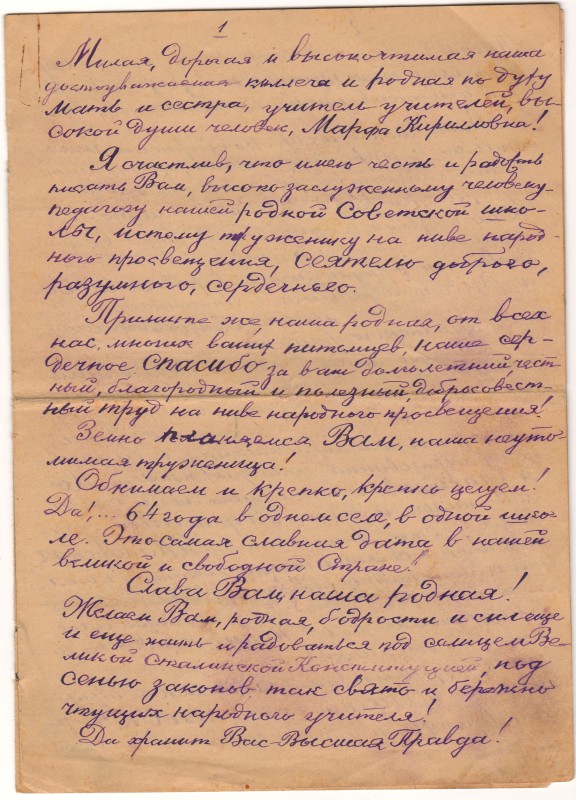 1
Милая, дорогая и высокочтимая наша
достоуважаемая коллега и родная по духу
мать и сестра, учитель учителей, вы-
сокой души человек, Марфа Кирилловна!
Я счастлив, что имею честь и радость
писать Вам, высоко заслуженному человеку-
педагогу нашей родной Советской шко-
лы, истому труженику на ниве народ-
ного просвещения, сеятелю доброго,
разумного, сердечного.
Примите же, наша родная, от всех
нас, многих ваших питомцев, наше сер-
дечное спасибо за ваш долголетний, чест-
ный, благородный и полезный добросовест-
ный труд на ниве народного просвещения!
Земно кланяемся Вам, наша неуто-
мимая труженица!
Обнимаем и крепко, крепко целуем!
Да!... 64 года в одном селе, в одной шко-
ле. Это самая славная дата в нашей
великой и свободной Стране!
Слава Вам, наша родная!
Желаем Вам, родная, бодрости и сил еще
и еще жить и радоваться под солнцем Ве-
ликой Сталинской Конституцией, под
сенью законов, так свято и бережно
чтущих народного учителя!
Да хранит Вас Высшая Правда!